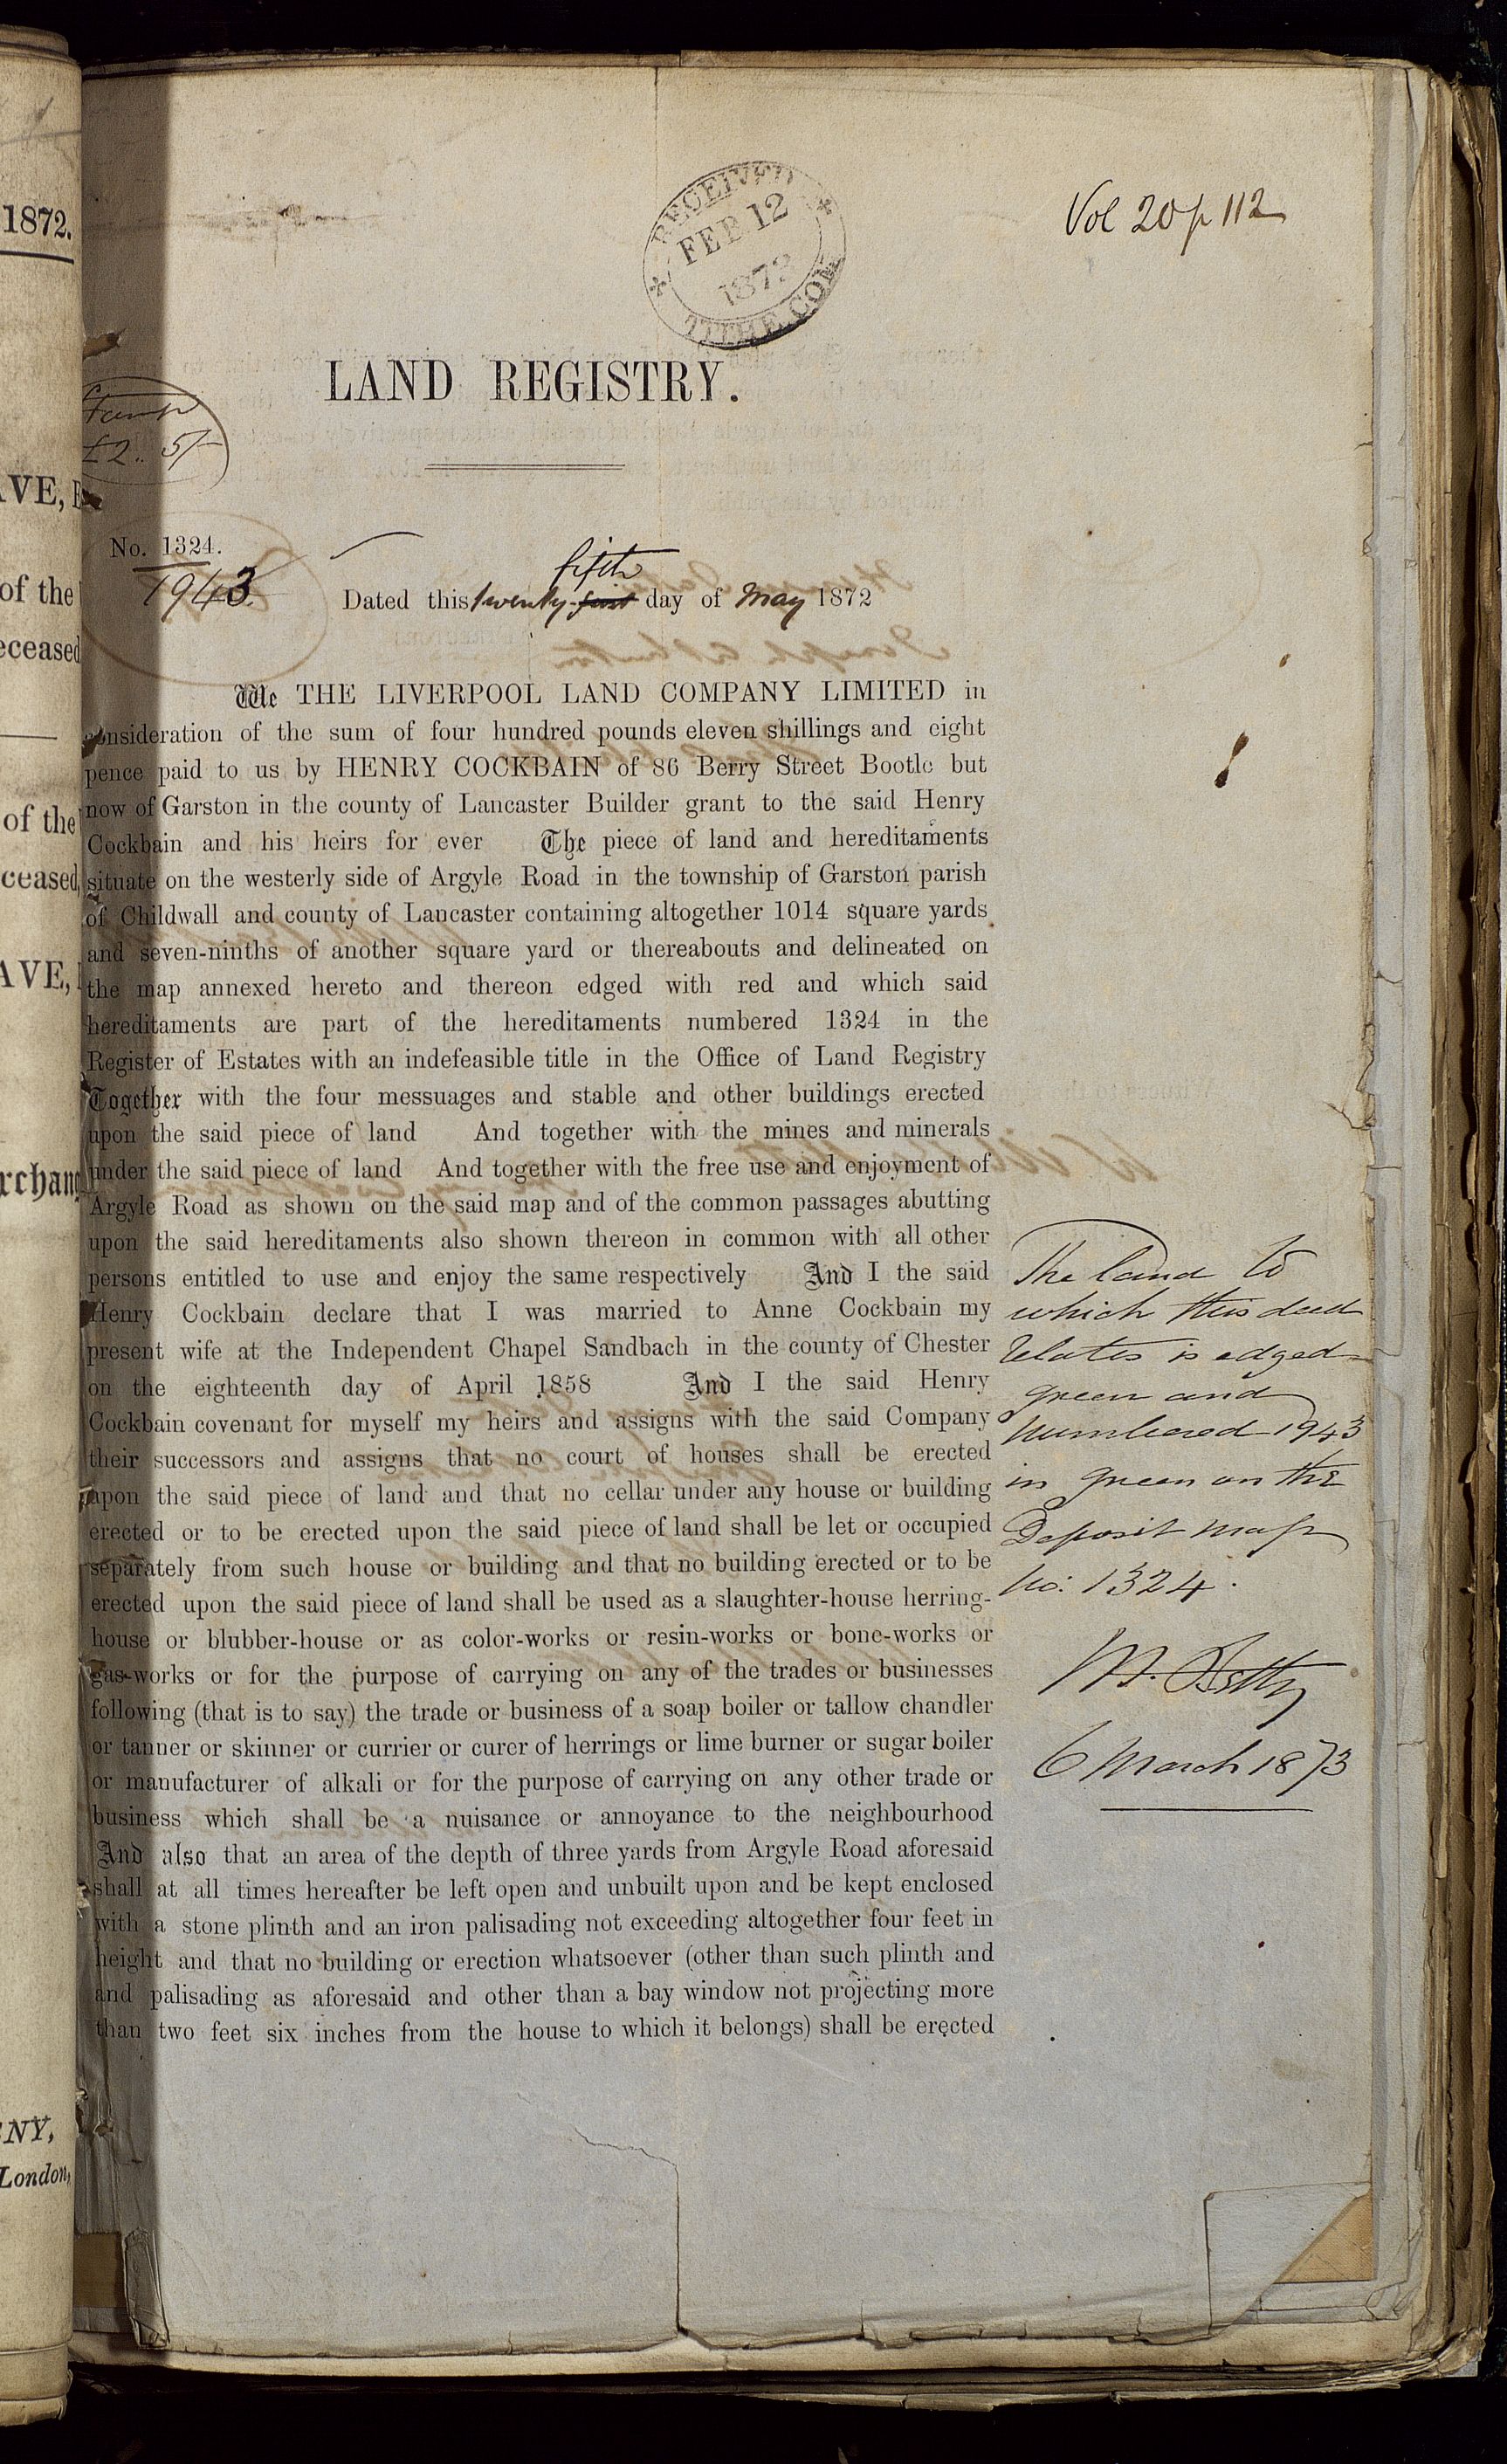 1872.
AVE,
of the
eceased
of the
ceased,
AVE,
rchan
NY,
London,
RECEIVED
FEB 12
187
TITHE COM
Vol 20 p 112
LAND REGISTRY.
Stamp
£2. 5/-
No. 1324.
1943.
fifth
Dated this twenty-first day of May 1872
We THE LIVERPOOL LAND COMPANY LIMITED in
consideration of the sum of four hundred pounds eleven shillings and eight
pence paid to us by HENRY COCKBAIN of 86 Berry Street Bootle but
now of Garston in the county of Lancaster Builder grant to the said Henry
Cockbain and his heirs for ever The piece of land and hereditaments
situate on the westerly side of Argyle Road in the township of Garston parish
of Childwall and county of Lancaster containing altogether 1014 square yards
and seven-ninths of another square yard or thereabouts and delineated on
the map annexed hereto and thereon edged with red and which said
hereditaments are part of the hereditaments numbered 1324 in the
Register of Estates with an indefeasible title in the Office of Land Registry
Together with the four messuages and stable and other buildings erected
upon the said piece of land And together with the mines and minerals
under the said piece of land And together with the free use and enjoyment of
Argyle Road as shown on the said map and of the common passages abutting
upon the said hereditaments also shown thereon in common with all other
persons entitled to use and enjoy the same respectively And I the said
Henry Cockbain declare that I was married to Anne Cockbain my
present wife at the Independent Chapel Sandbach in the county of Chester
on the eighteenth day of April 1858 And I the said Henry
Cockbain covenant for myself my heirs and assigns with the said Company
their successors and assigns that no court of houses shall be erected
upon the said piece of land and that no cellar under any house or building
erected or to be erected upon the said piece of land shall be let or occupied
separately from such house or building and that no building erected or to be
erected upon the said piece of land shall be used as a slaughter-house herring-
house or blubber-house or as color-works or resin-works or bone-works or
gas-works or for the purpose of carrying on any of the trades or businesses
following (that is to say) the trade or business of a soap boiler or tallow chandler
or tanner or skinner or currier or curer of herrings or lime burner or sugar boiler
or manufacturer of alkali or for the purpose of carrying on any other trade or
business which shall be a nuisance or annoyance to the neighbourhood
And also that an area of the depth of three yards from Argyle Road aforesaid
shall at all times hereafter be left open and unbuilt upon and be kept enclosed
with a stone plinth and an iron palisading not exceeding altogether four feet in
height and that no building or erection whatsoever (other than such plinth and
and palisading as aforesaid and other than a bay window not projecting more
than two feet six inches from the house to which it belongs) shall be erected
The land to
which this deed
relates is edged
green and
numbered 1943
in green on the
Deposit map
No. 1324.
6 March 1873